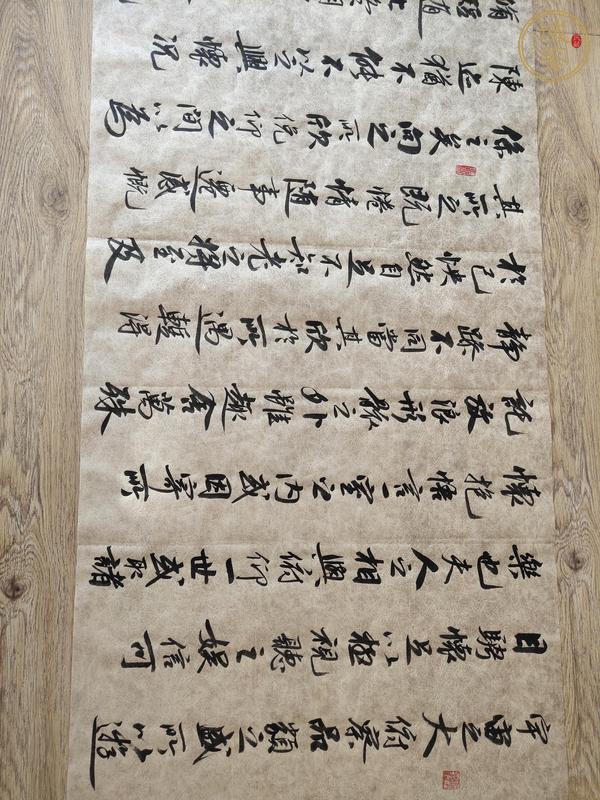 宇宙之大俯察品類之盛所以遊
目騁懷足以極視聽之娱信可
樂也夫人之相與俯仰一世或取諸
懷抱悟言一室之内或因寄所
託放浪形骸之外雖趣舍萬殊
靜躁不同當其欣於所遇暫得
於己快然自足不知老之將至及
其所之既惓情隨事遷感慨
係之矣向之所欣俛仰之間以爲
陳迹猶不能不以之興懷況